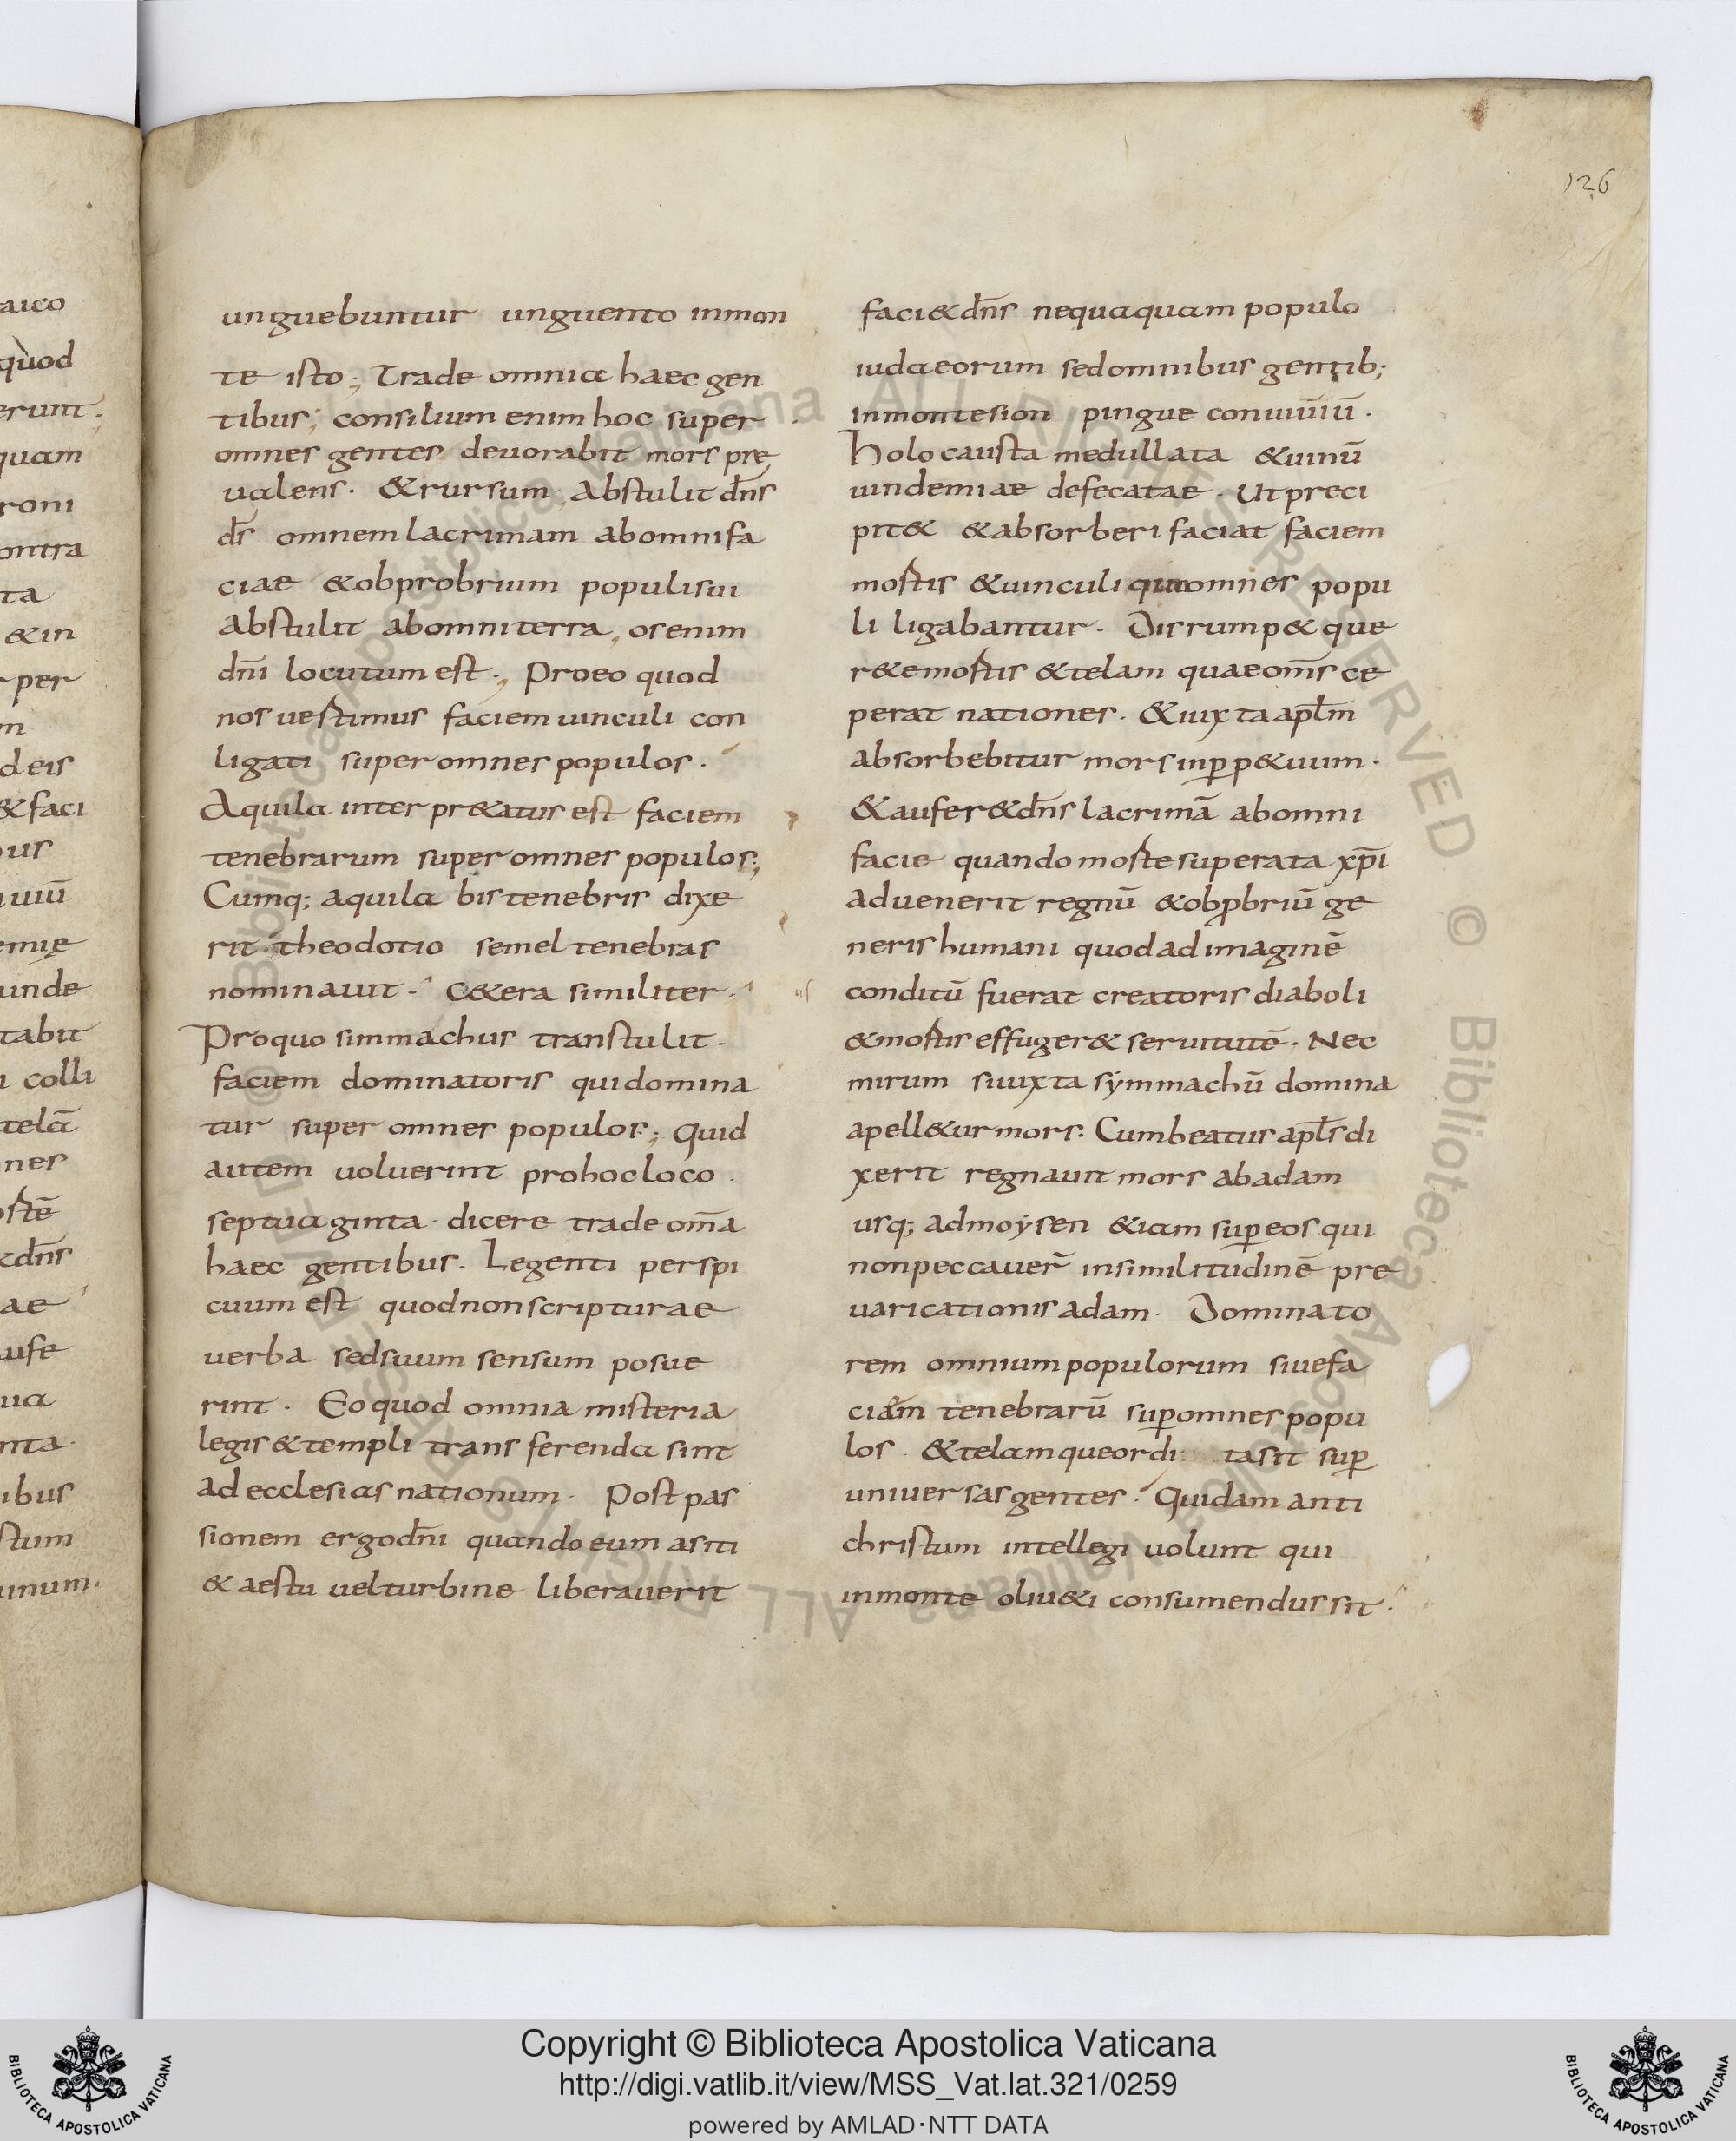 aico
quod
erunt.,
quam
roni
ontra
ta
&in
per
m
deis
&faci
bus
uiuiū
emię
unde
tabit
i colli
telā
nes
ostē
&dn̄s
ae
aufe
ua
nta
ibus
stum
uinum.
126
unguebuntur unguento inmon
te isto., Trade omnia haec gen
tibus; consilium enim hoc super
omnes gentes deuorabit mors pre
ualens. &rursum, Abstulit dn̄s
ds̄ omnem lacrimam abomnifa
ciae &obprobrium populisui
Abstulit abomniterra, osenim
dn̄i locutum est., Proeo quod
nos uestimus faciem uinculi con
ligati super omnes populos.
Aquila interpr&atus est faciem
tenebrarum super omnes populos.,
Cumq; aquila bis tenebris dixe
rit. theodotio semel tenebras
nominauit. C&era similiter.
Pro quo simmachus transtulit.
faciem dominatoris qui domina
tur super omnes populos., Quid
autem uoluerint prohocloco.
septuaginta dicere trade om̄a
haec gentibus. Legenti perspi
cuum est quodnon scripturae
uerba sedsuum sensum posue
rint. Eo quod omnia misteria
legis &templi transferenda sint
ad ecclesias nationum. Post pas
sionem ergo dn̄i quando eum asiti
& aestu uelturbine liberauerit
faci&dn̄s nequaquam populo
iudaeorum sedomnibus gentib;
inmontesion pingue conuiuiū.
holocausta medullata &uinū
uindemiae defecatae. Ut preci
pit& &absorberi faciat faciem
mostis &uinculi omnes popu
li ligabantur. Disrump& que
r&emostis &telam quae om̄s ce
perat nationes. &iuxta apl̄m
absorbebitur mors inp̱p&uum.
&aufer&dn̄s lacrimā abomni
facie quando moste superata xp̄i
aduenerit regnū &obp̱briū ge
neris humani quodad imaginē
conditū fuerat creatoris diaboli
&mostis effuger& seruitutē. Nec
mirum siiuxta sẏmmachū domina
apell&ur mors. Cum beatus apl̄s di
xerit regnauit mors abadam
usq; admoẏsen &iam sup̱eos qui
nonpeccauer̄ insimilitudinē pre
uaricationis adam. Dominato
rem omnium populorum siuefa
ciam tenebrarū sup̱omnes popu
los. &telam queordi tasit sup̱
uniuersas gentes. Quidam anti
christum intellegi uolunt qui
inmonte oliu&i consumendus sit.
Copyright © Biblioteca Apostolica Vaticana
http://digi.vatlib.it/view/MSS_Vat.lat.321/0259
powered by AMLAD·NTT DATA
BIBLIOTECA APOSTOLICA VATICANA
BIBLIOTECA APOSTOLICA VATICANA